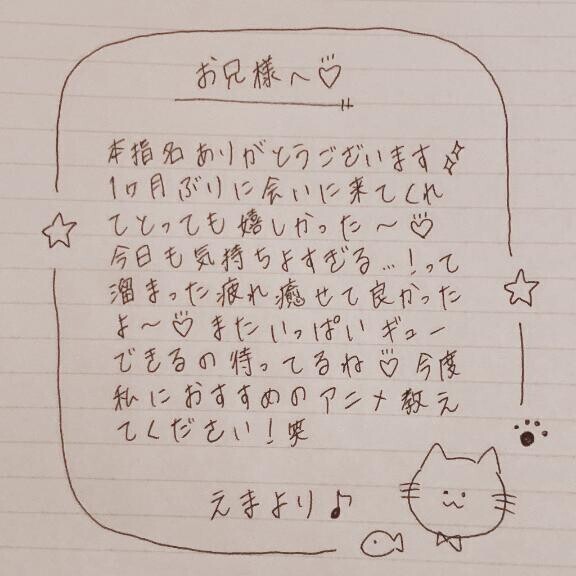 お兄様へ♡
本指名ありがとうございます✨
1ヶ月ぶりに会いに来てくれ
てとっても嬉しかった〜♡
今日も気持ちよすぎる…!って
溜まった疲れ癒せて良かった
よ〜♡またいっぱいギュー
できるの待ってるね♡今度
私におすすめのアニメ教え
てください!笑
えまより♪